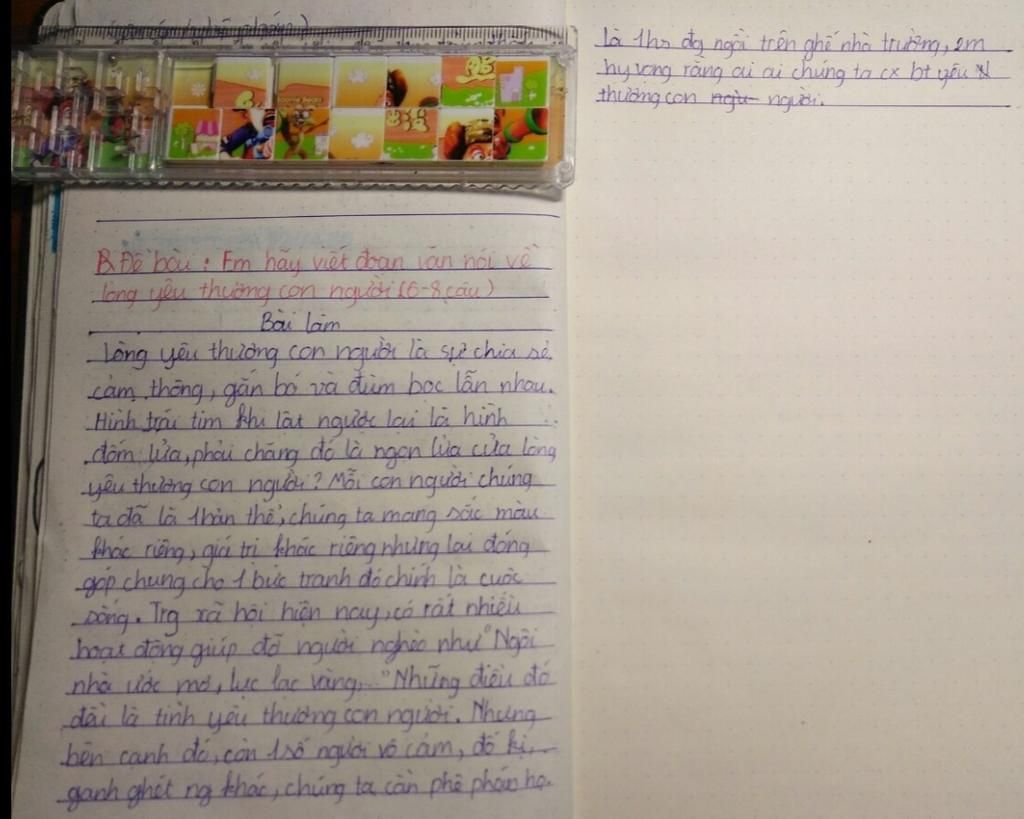 B. Đề bài : Em hãy viết đoạn văn nói về
lòng yêu thương con người (6-8 câu)
Bài làm
Lòng yêu thương con người là sự chia sẻ,
cảm thông, gắn bó và đùm bọc lẫn nhau.
Hình trái tim khi lật ngược lại là hình
đốm lửa, phải chăng đó là ngọn lửa của lòng
yêu thương con người? Mỗi con người chúng
ta đã là 1 bản thể, chúng ta mang sắc màu
khác riêng, giá trị khác riêng nhưng lại đóng
góp chung cho 1 bức tranh đó chính là cuộc
sống. Trg xã hội hiện nay, có rất nhiều
hoạt động giúp đỡ người nghèo như "Ngôi
nhà ước mơ, lục lạc vàng,..." Những điều đó
đâì là tình yêu thương con người. Nhưng
bên cạnh đó, còn 1 số người vô cảm, đố kị,
ganh ghét ng khác, chúng ta cần phê phán họ.
là 1 hs đg ngồi trên ghế nhà trường, em
hy vọng rằng ai ai chúng ta cx bt yêu
thương con người.